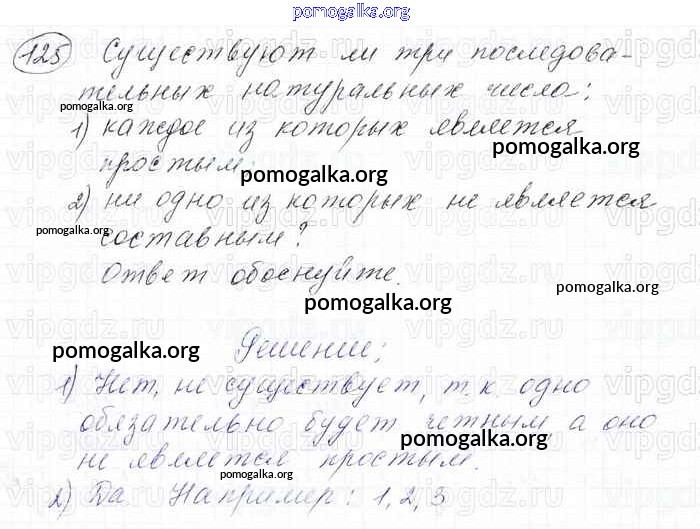 pomogalka.org
125 Существуют ли три последова-
тельных натуральных числа:
pomogalka.org
1) каждое из которых является
pomogalka.org
простым;
pomogalka.org
2) ни одно из которых не является
pomogalka.org
составным?
Ответ обоснуйте.
pomogalka.org
pomogalka.org
pomogalka.org
Решение:
1) Нет, не существует, т.к. одно
обязательно будет четным, а оно
pomogalka.org
не является простым.
pomogalka.org
2) Да. Например: 1, 2, 3